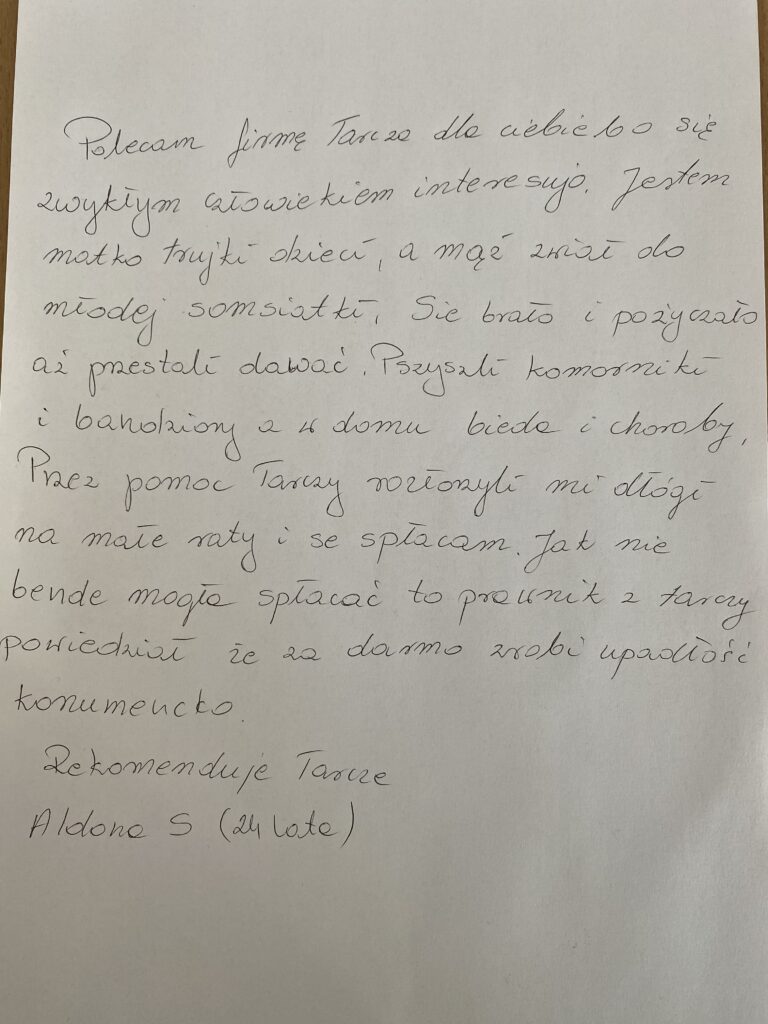 Polecam firmę Tarcza dla ciebie bo się
zwykłym człowiekiem interesujo. Jestem
matko trujki dzieci, a mąż zwiał do
młodej somsiatki. Sie brało i pożyczało
aż przestali dawać. Pszyszli komorniki
i bandziory a w domu bieda i choroby.
Przez pomoc Tarczy rozłożyli mi dłógi
na małe raty i se spłacam. Jak nie
bende mogła spłacać to prawnik z tarczy
powiedział że za darmo zrobi upadłość
konumencko.
Rekomenduje Tarcze
Aldona S (24 lata)